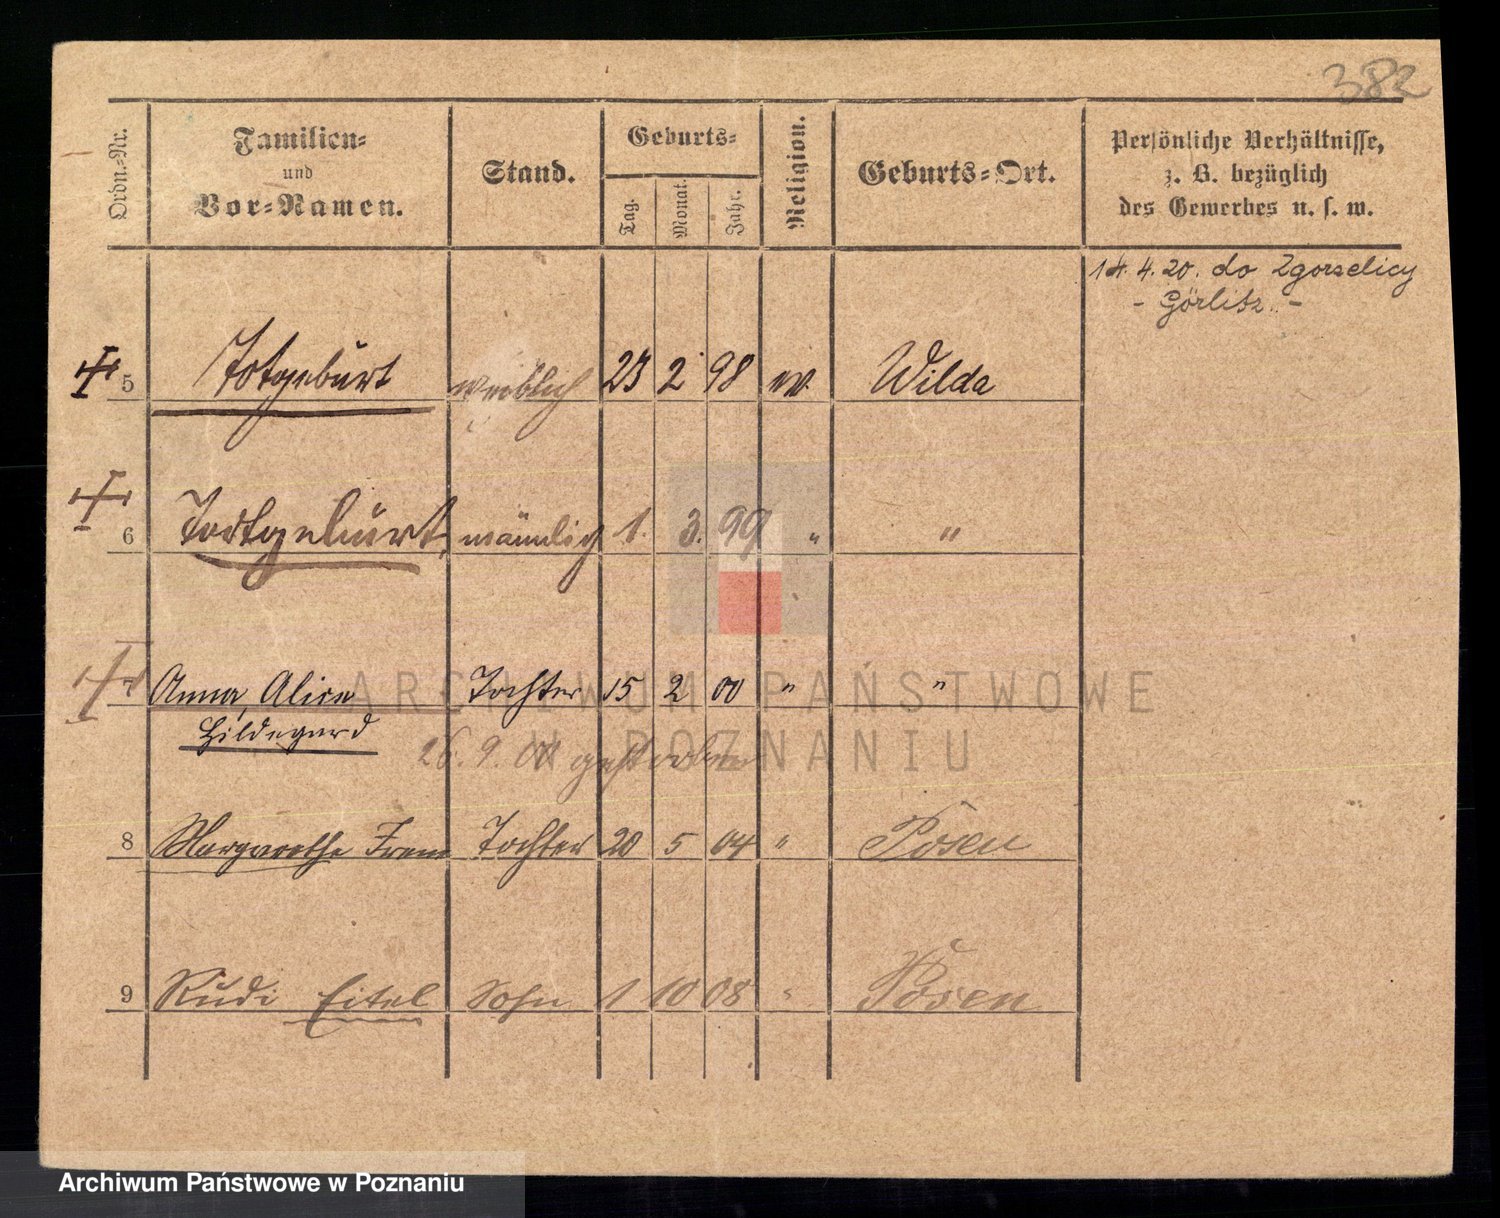 382
Ordn.-Nr. Familien- und Vor-Namen. Stand. Geburts- Tag. Monat. Jahr. Religion. Geburts-Ort. Persönliche Verhältnisse, z. B. bezüglich des Gewerbes u. s. w.
14. 4. 20. do Zgorzelicy
- Görlitz. -
5 Totgeburt weiblich 23 2 98 ev. Wilda
6 Todtgeburt, männlich 1. 3. 99 " "
7 Anna, Alice Tochter 15 2 00 " "
Hildegard
26. 9. 00 gestorben
8 Margarethe Irene Tochter 20 5 04 " Posen
9 Rudi Eitel Sohn 1 10 08 " Posen
ARCHIWUM PAŃSTWOWE
W POZNANIU
Archiwum Państwowe w Poznaniu